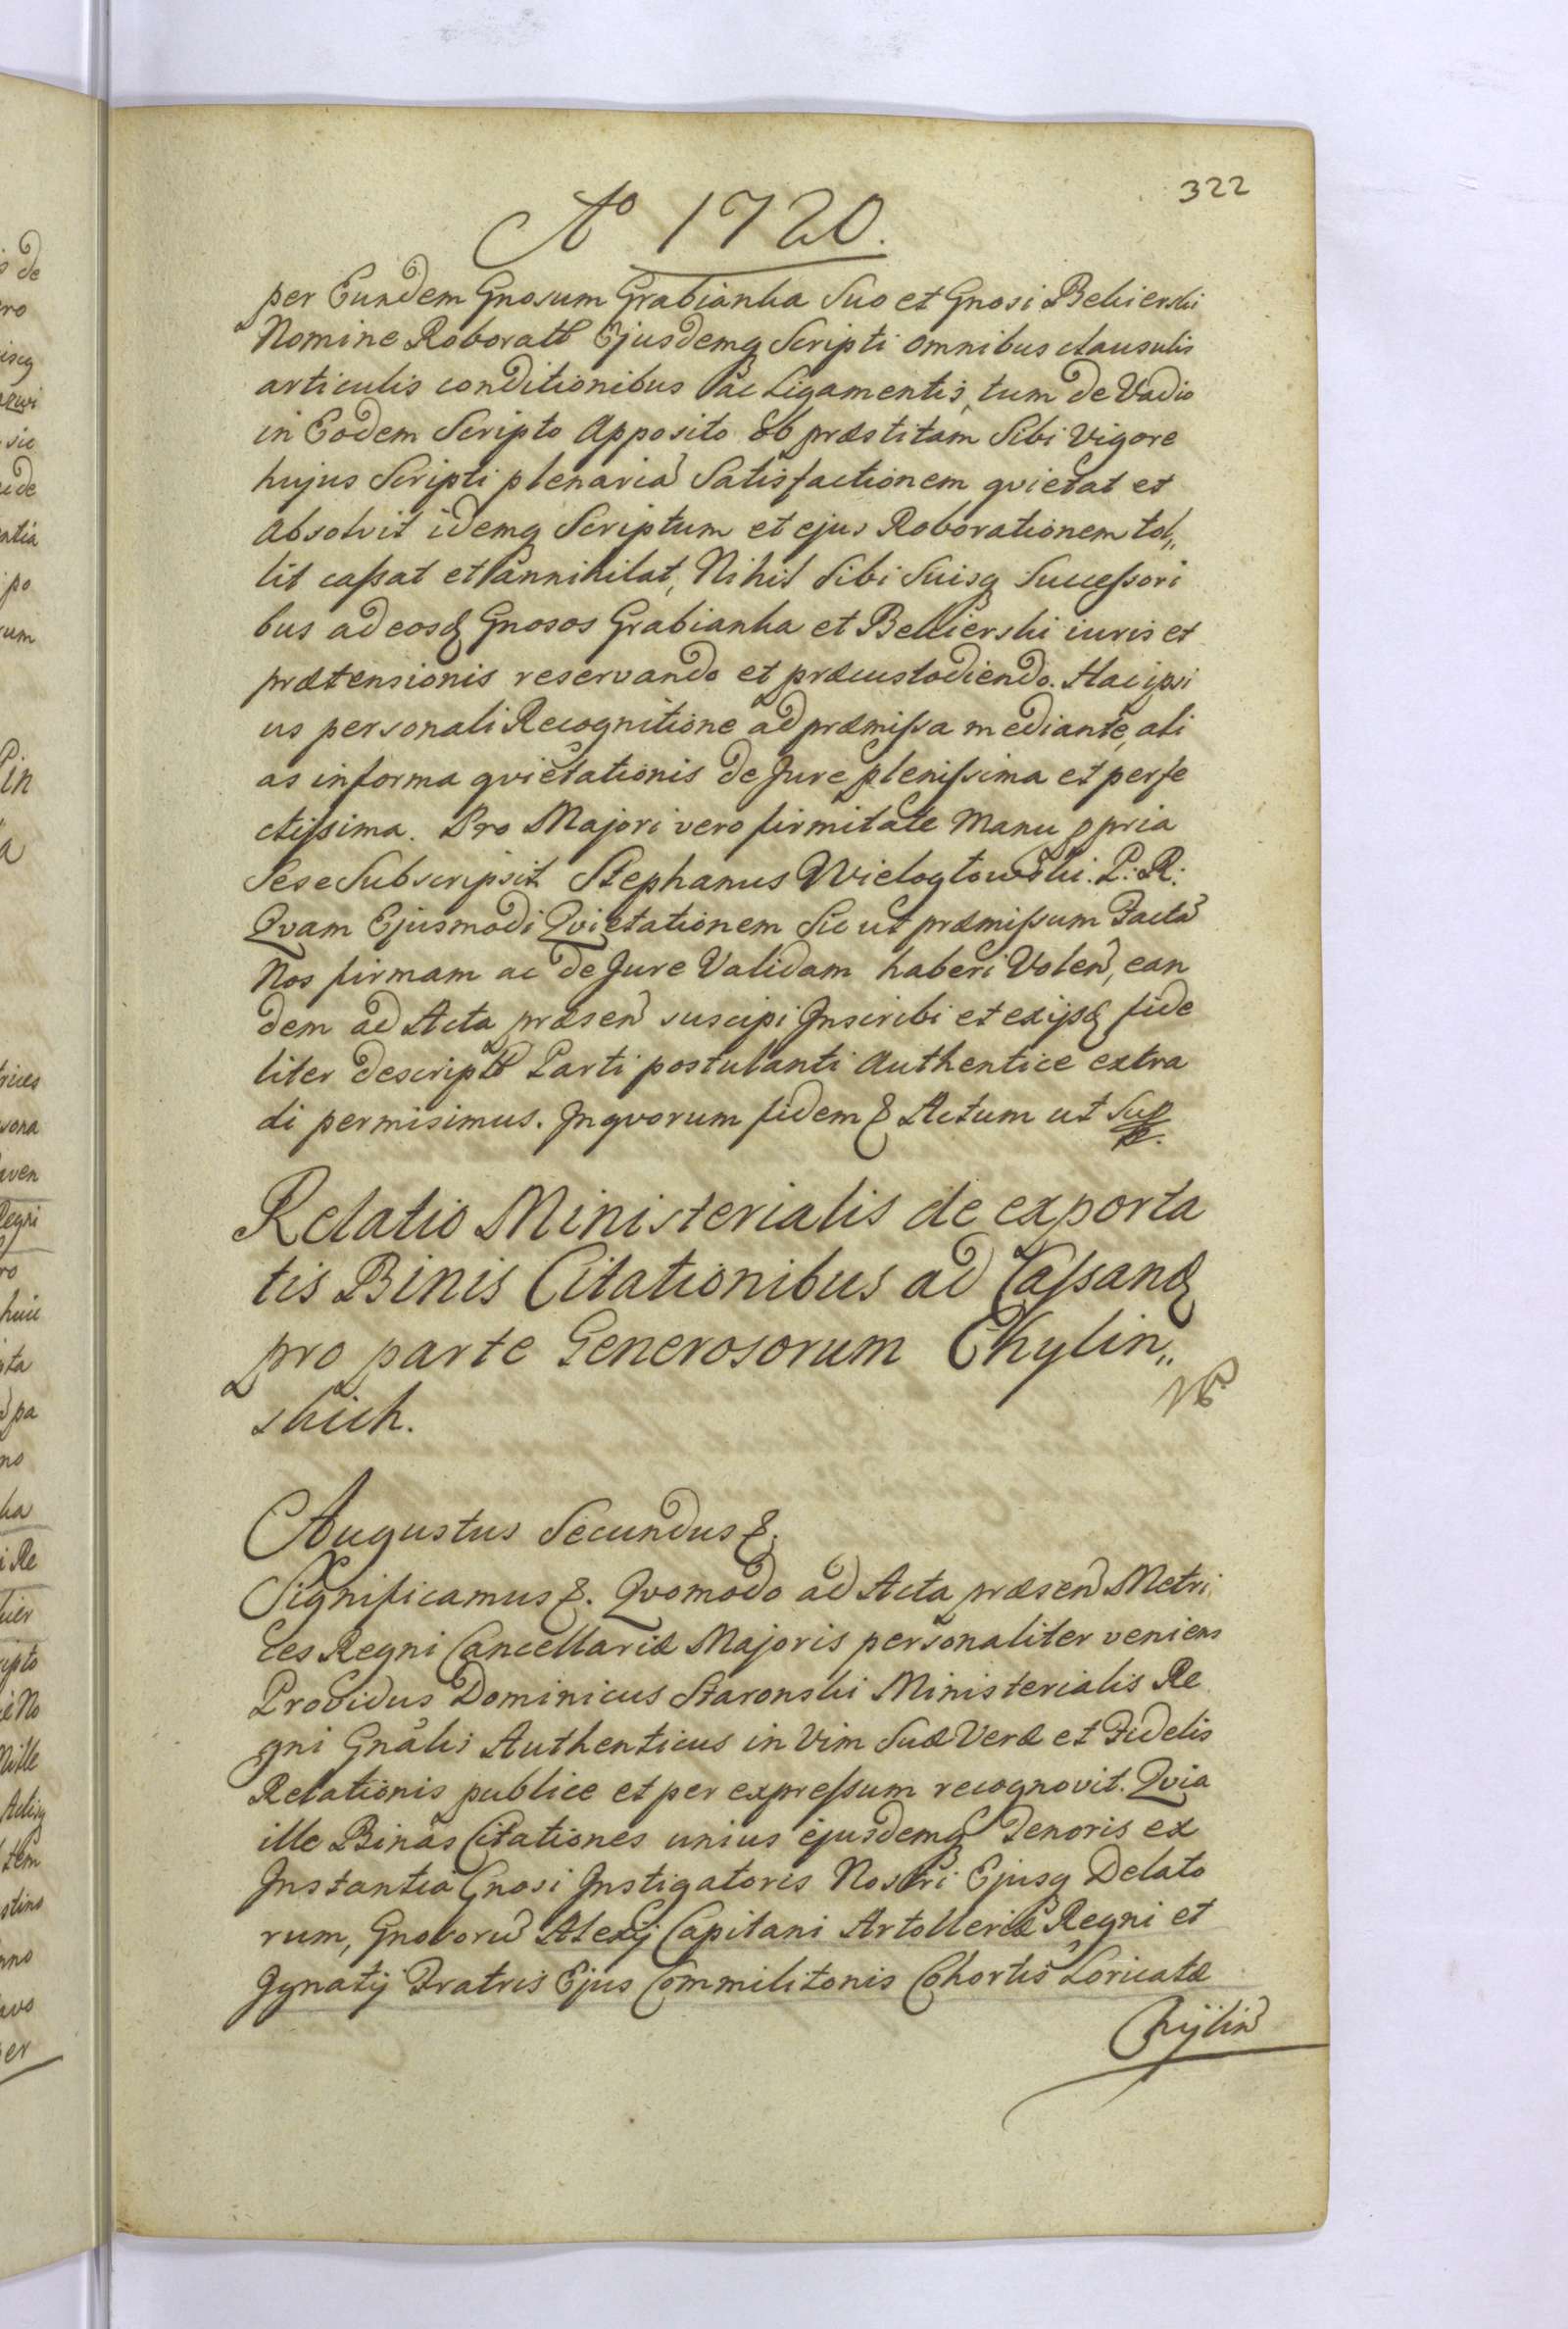 322
Aº 1720.
per Eundem Gnosum Grabianka Suo et Gnosi Bekierski
Nomine Roborato Ejusdemq Scripti omnibus clausulis
articulis conditionibus ac Ligamentis, tum de Vadio
in Eodem Scripto Apposito ob præstitam Sibi Vigore
hujus Scripti plenariã Satisfactionem qvietat et
Absolvit idemq Scriptum et ejus Roborationem tol„
lit cassat et annihilat, Nihil Sibi Suisq Successori
bus ad eosd Gnosos Grabianka et Bekierski iuris et
prætensionis reservando et præcustodiendo. Hac ipsi
us personali Recognitione ad præmissa mediante, ali
as in forma qvietationis de Jure plenissima et perfe
ctissima. Pro Majori vero firmitate Manu ppria
Sese Subscripsit Stephanus Wieloglowski. P: R:
Qvam Ejusmodi Qvietationem Sic ut præmissum Factã
Nos firmam ac de Jure Validam haberi Volen, ean
dem ad Acta præsen suscipi Inscribi et ex ijsd fide
liter descripto Parti postulanti Authentice extra
di permisimus. In qvorum fidem & Actum ut Sup
Relatio Ministerialis de exporta
tis Binis Citationibus ad Cassand
pro parte Generosorum Chylin„
skich.
Augustus Secundus &.
Significamus &. Qvomodo ad Acta præsen Metri
ces Regni Cancellariæ Majoris personaliter veniens
Providus Dominicus Staronski Ministerialis Re
gni Gnalis Authenticus in Vim Suæ Veræ et Fidelis
Relationis publice et per expressum recognovit. Qvia
ille Binas Citationes unius ejusdemq Tenoris ex
Instantia Gnosi Instigatoris Nostri Ejusq Delato
rum, Gnosorũ Alexij Capitani Artolleriæ Regni et
Ignatij Fratris Ejus Commilitonis Cohortis Loricatæ
Chijlin